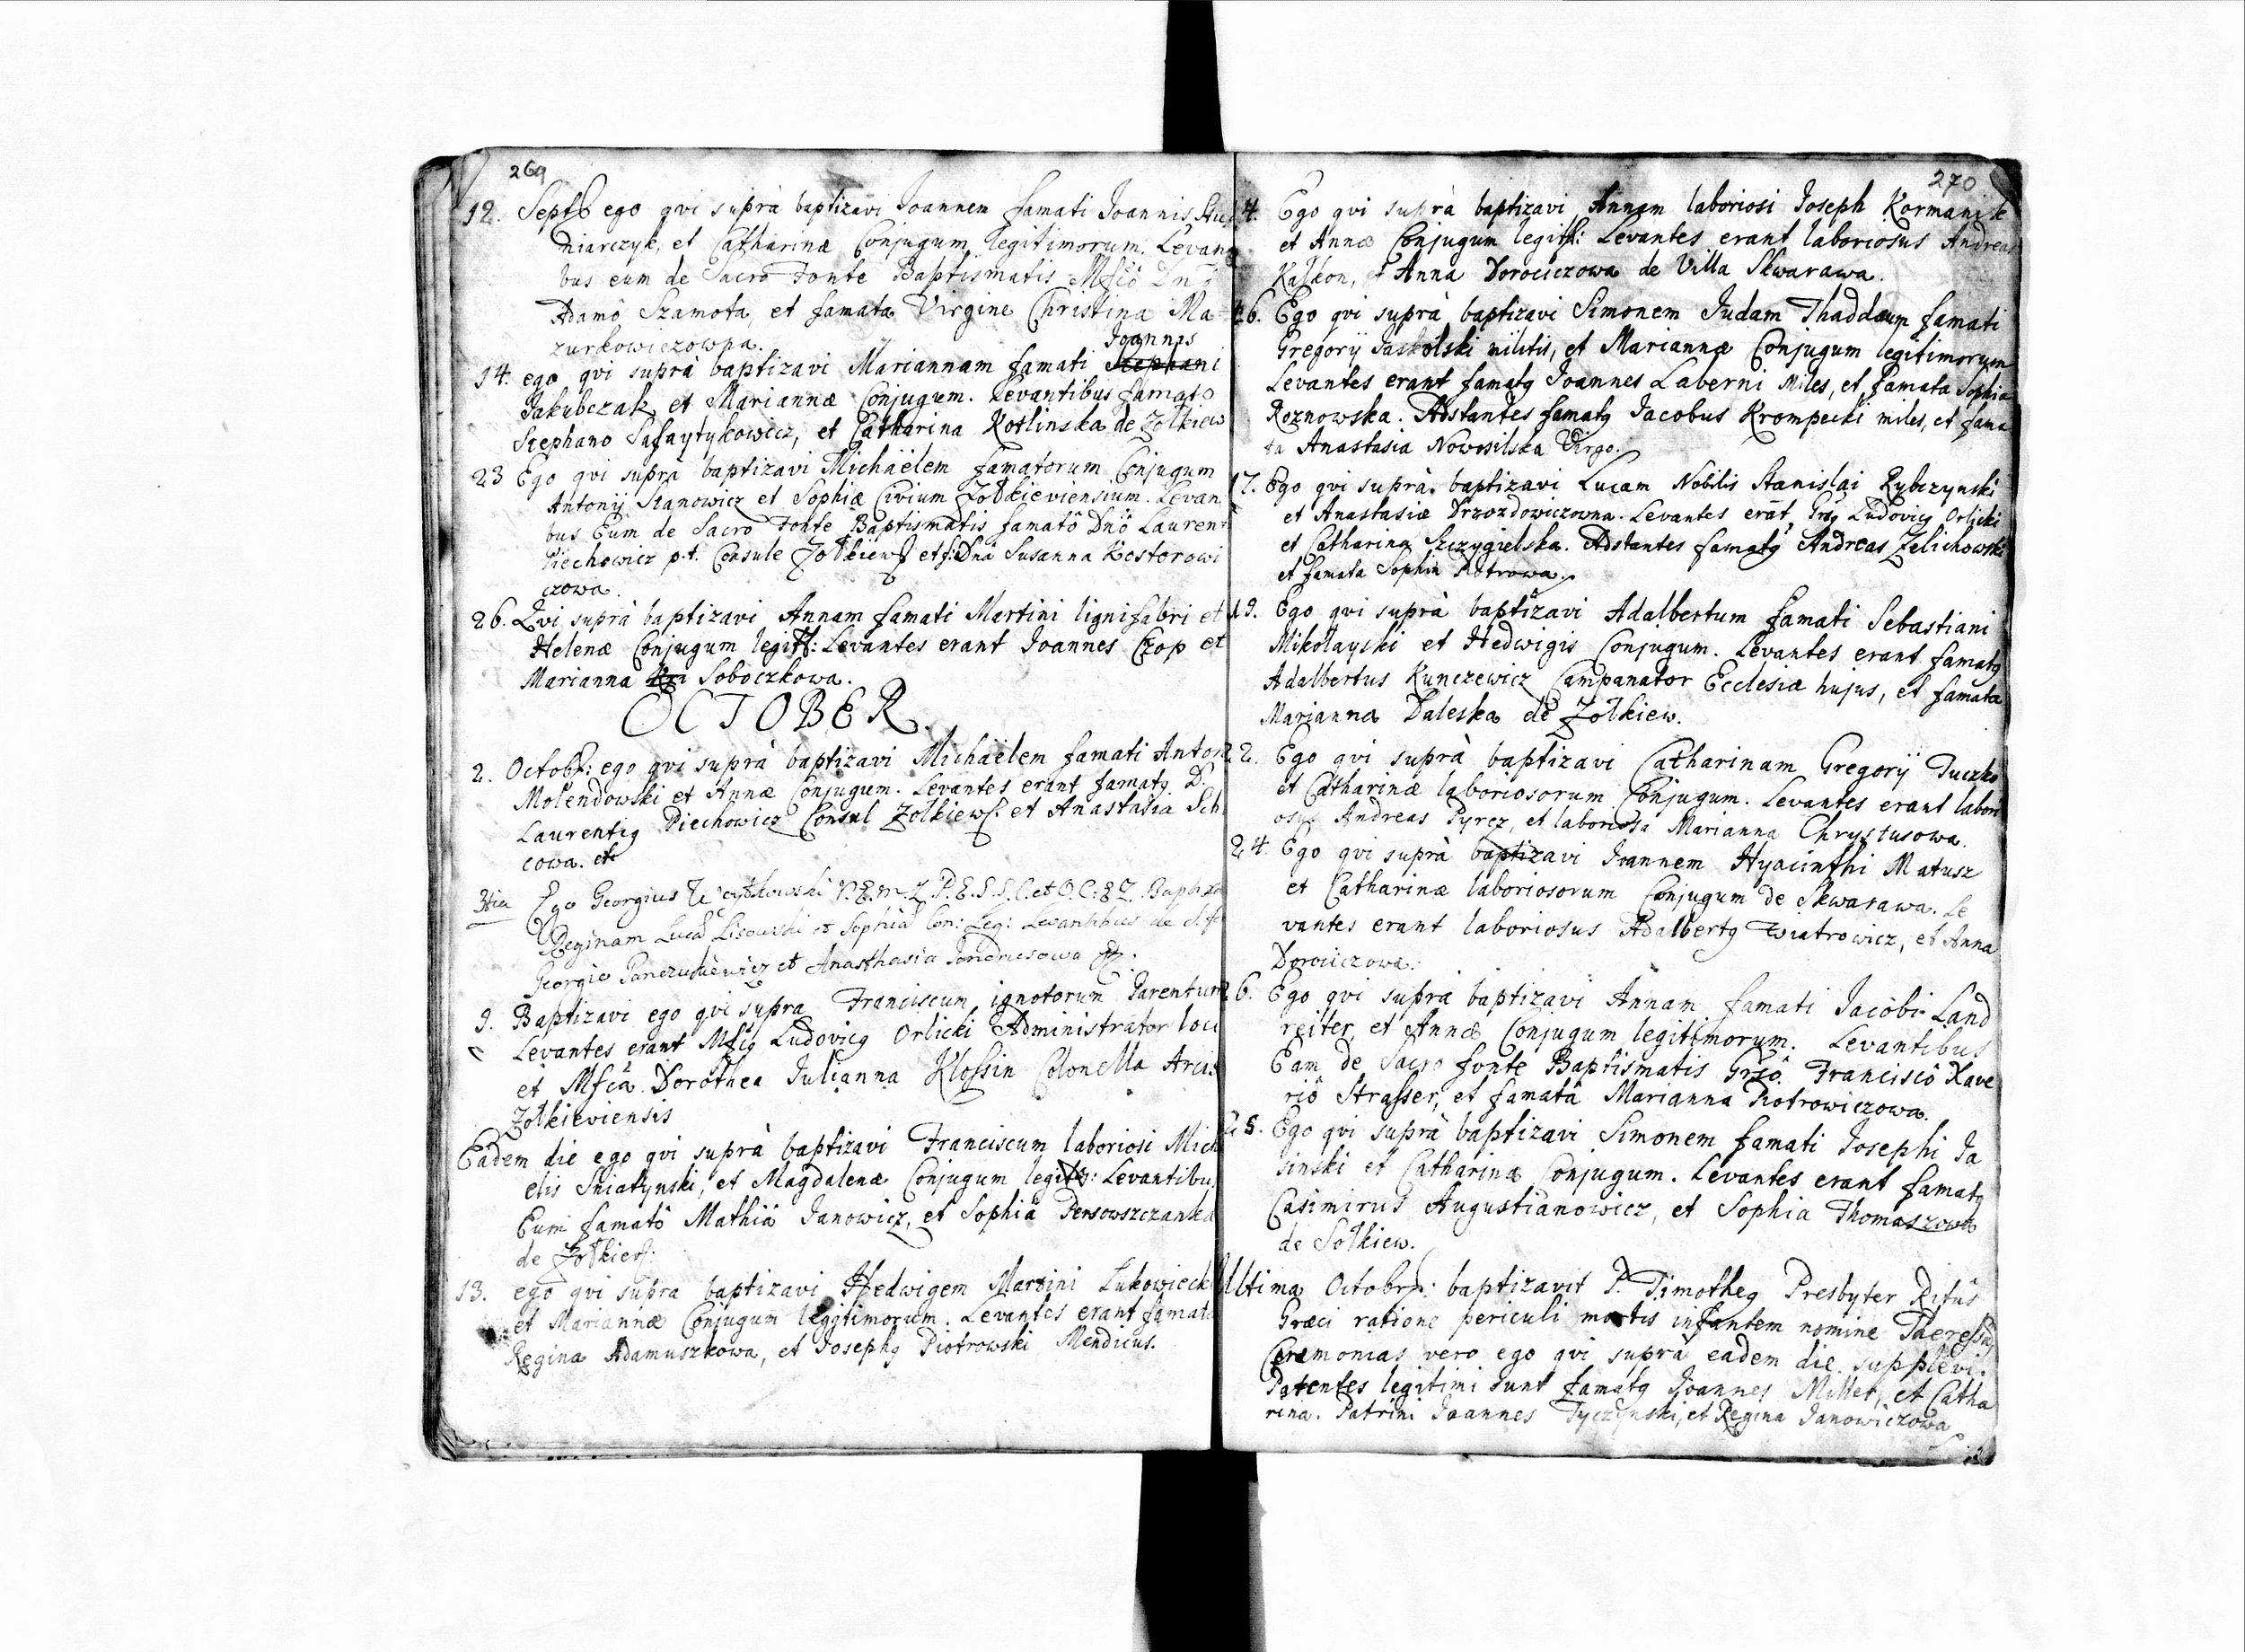 269
12. Septb ego qvi suprà baptizavi Joannem famati Joannis
niarczyk, et Catharinæ Conjugum legitimorum. Levan
bus eum de Sacro Fonte Baptismatis Mfcô Dnô
Adamô Szamota, et famata Virgine Christina Ma
zurkowiczowna.
Joannis
14. ego qvi suprà baptizavi Mariannam famati Stephani
Jakubczak et Mariannæ Conjugum. Levantibus famato
Stephano Safaytykowicz, et Catharina Kotlinska de Zolkiew
23 Ego qvi suprà baptizavi Michäelem famatorum Conjugum
Antonij Stanowicz et Sophiæ Civium Zolkieviensium. Levan
bus Eum de Sacro Fonte Baptismatis famatô Dnô Laurent
Piechowicz p.t. Consule Zolkiew et f: Dna Susanna Kostorowi
czowa.
26. Qvi suprà baptizavi Annam famati Martini lignifabri et
Helenæ Conjugum legitt: Levantes erant Joannes Czop et
Marianna Soboczkowa.
OCTOBER.
2. Octobr: ego qvi suprà baptizavi Michäelem famati Anton
Molendowski et Annæ Conjugum. Levantes erant famatg. D.
Laurentig Piechowicz Consul Zolkiews: et Anastasia Sch
cowa. etc
3tia Ego Georgius P.E.S.S.C. et O.C:
Reginam Lucæ Lisowski et Sophiæ Con: Leg: Levantibus de S. fo
Georgio et Anasthasia
9. Baptizavi ego qvi supra Franciscum ignotorum Parentum
Levantes erant Mfcg Ludovicg Orlicki Administrator loci
et Mfca Dorothea Julianna Klossin Colonella Arcis
Zolkieviensis
Eadem die ego qvi suprà baptizavi Franciscum laboriosi Mich
elis Sniatynski, et Magdalenæ Conjugum legitt: Levantibu
Eum famatô Mathiâ Janowicz, et Sophiâ Persowszczanka
de Zolkiew:
13. ego qvi supra baptizavi Hedwigem Martini Lukowieck
et Mariannæ Conjugum legitimorum. Levantes erant famata
Regina Adamuszkowa, et Josephg Piotrowski Mendicus.
270
14. Ego qvi suprà baptizavi Annam laboriosi Joseph Kormanik
et Annæ Conjugum legitt: Levantes erant laboriosus Andreas
Kaskon, et Anna Dorociczowa de Villa Skwarawa.
16. Ego qvi suprà baptizavi Simonem Judam Thaddæum famati
Gregorij Jaskolski militis, et Mariannæ Conjugum legitimorum
Levantes erant famatg Joannes Laberni Miles, et famata Sophia
Roznowska. Adstantes famatg Jacobus Krompecki miles, et fama
ta Anastasia Nowosilska Virgo.
17. Ego qvi suprà baptizavi Lucam Nobilis Stanislai Rybczynski
et Anastasiæ Drzozdowiczowna. Levantes erat, Grsg Ludovicg Orlicki
et Catharina Szczygielska. Adstantes famatg Andreas Zelichowski
et famata Sophia Piotrowa.
19. Ego qvi suprà baptizavi Adalbertum famati Sebastiani
Mikolayski et Hedwigis Conjugum. Levantes erant famatg
Adalbertus Kunczewicz Campanator Ecclesiæ hujus, et famata
Marianna Daleska de Zolkiew.
22. Ego qvi suprà baptizavi Catharinam Gregorij Tuczko
et Catharinæ laboriosorum Conjugum. Levantes erant labori
osus Andreas Pyrcz, et laboriosa Marianna Chrystusowa.
24. Ego qvi suprà baptizavi Joannem Hyacinthi Matusz
et Catharinæ laboriosorum Conjugum de Skwarawa. Le
vantes erant laboriosus Adalbertg Zwiatrowicz, et Anna
Dorociczowa.
26. Ego qvi suprà baptizavi Annam famati Jacobi Land
reiter, et Annæ Conjugum legitimorum. Levantibus
Eam de Sacro fonte Baptismatis Grsô Franciscô Xave
riô Strasser, et famatâ Marianna Piotrowiczowa.
28. Ego qvi suprà baptizavi Simonem famati Josephi Ja
sinski et Catharinæ Conjugum. Levantes erant famatg
Casimirus Augustianowicz, et Sophia Thomaszowa
de Solkiew.
Ultima Octobr: baptizavit P. Timotheg Presbyter Ritûs
Græci ratione periculi mortis infantem nomine Theressiã
Ceremonias vero ego qvi suprà eadem die supplevi.
Parentes legitimi sunt famatg Joannes Miller, et Catha
rina. Patrini Joannes Tyczynski, et Regina Janowiczowa